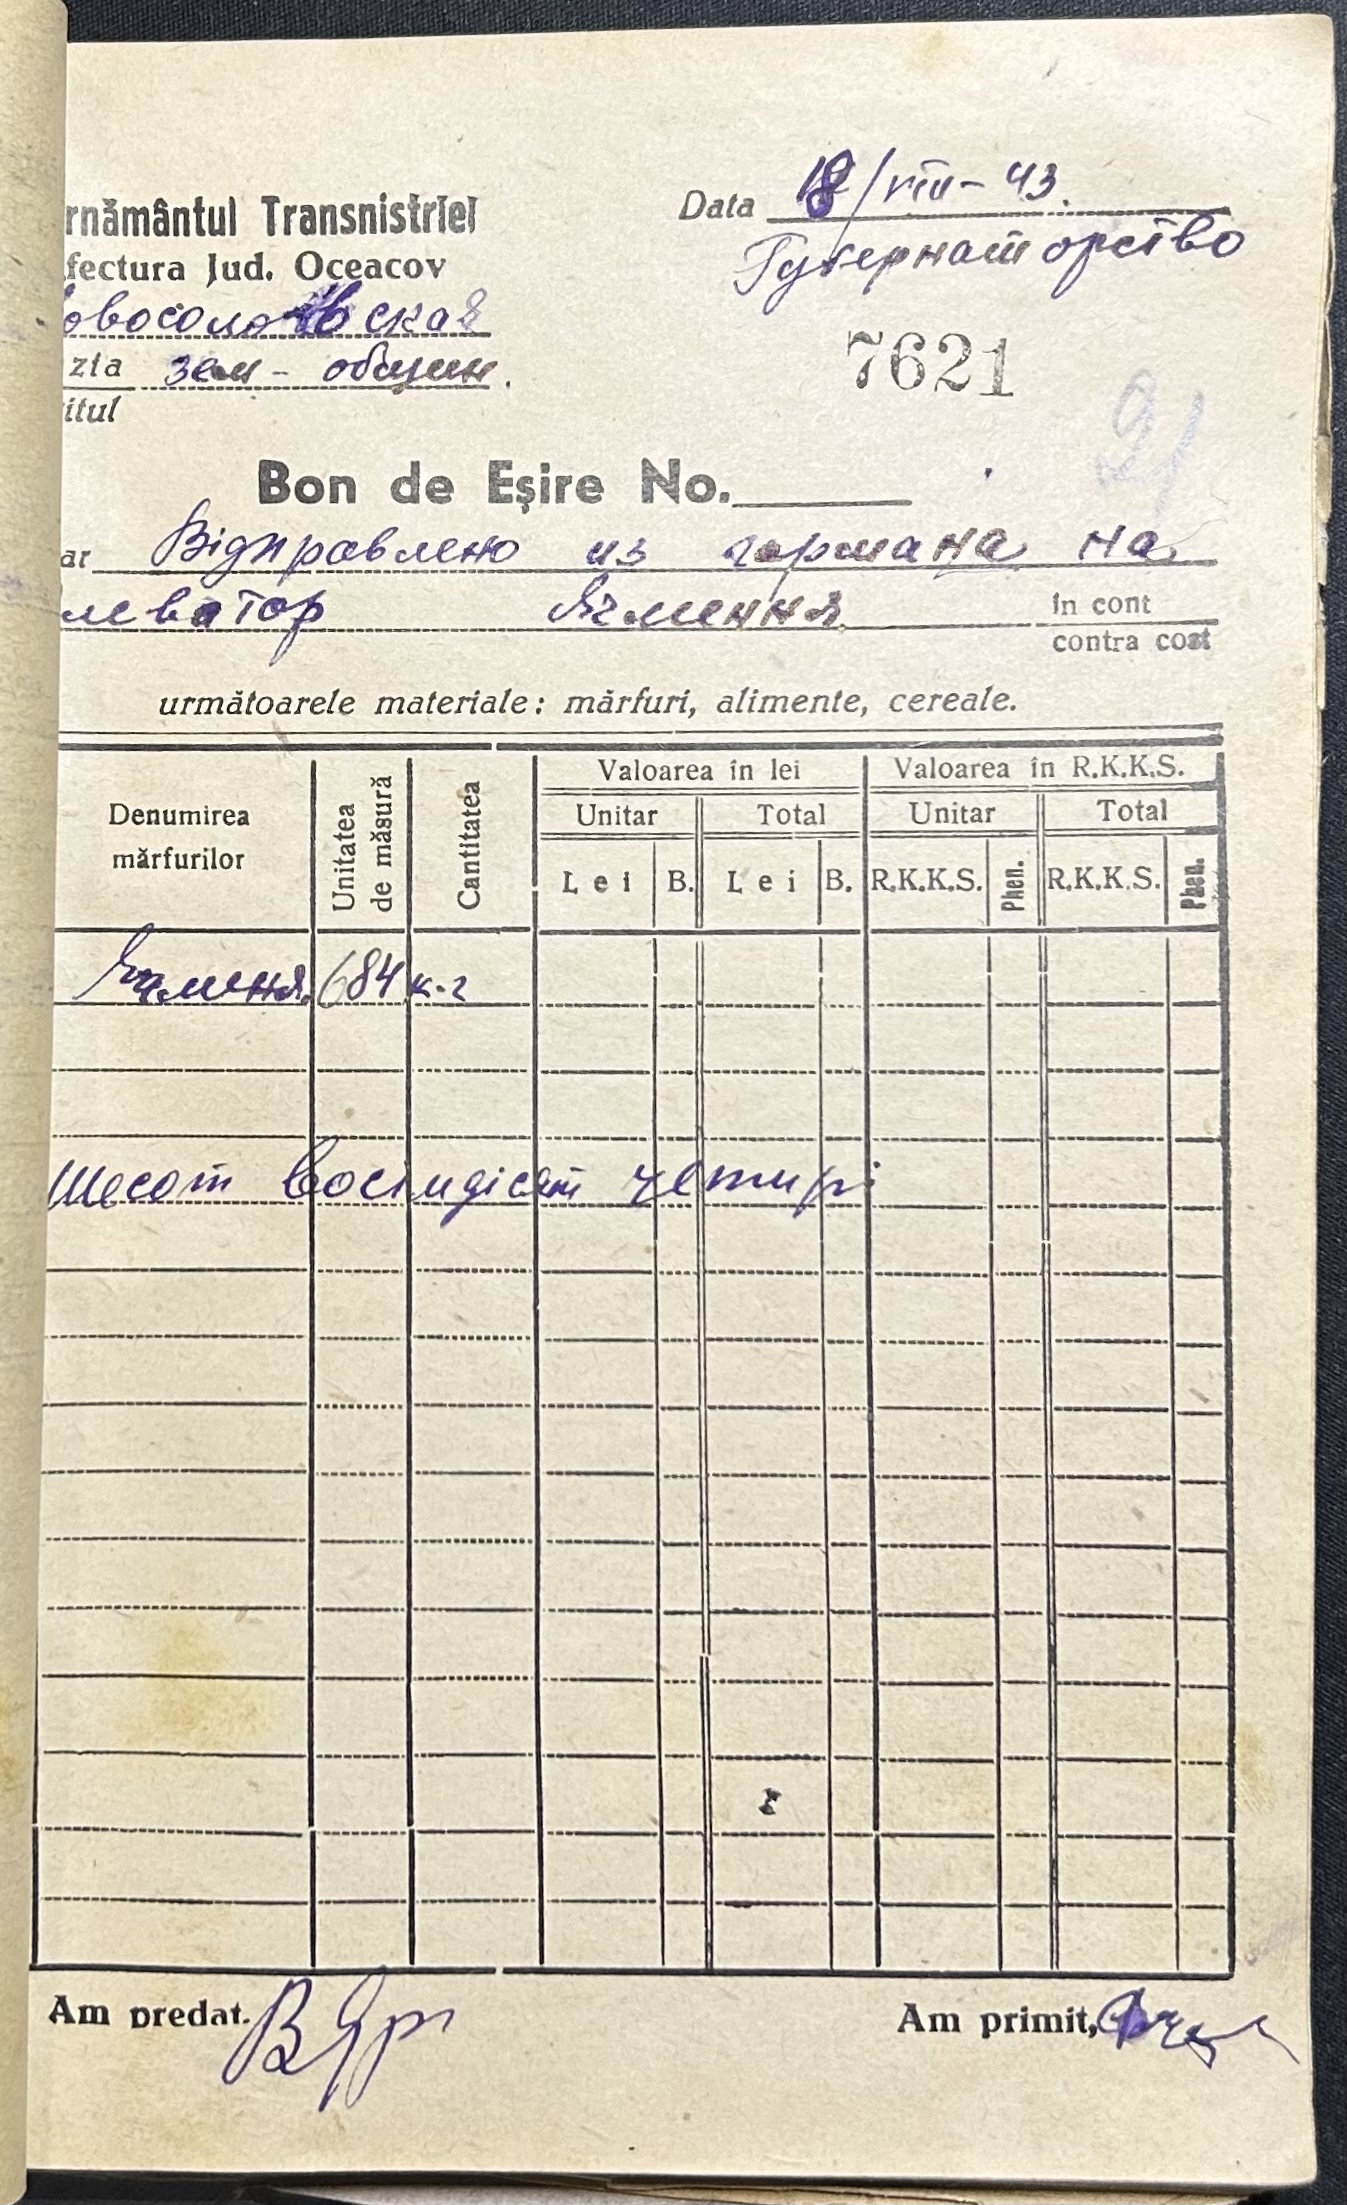 rnământul Transnistriei
fectura Jud. Oceacov
Data 18/VIII-43.
Губернаторство
овосоловская
zia зем-общин.
itul
7621
21
Bon de Eşire No.
ar Відправлено из гармана на
леватор Ячмення
în cont
contra cost
următoarele materiale: mărfuri, alimente, cereale.
Denumirea mărfurilor
Unitatea de măsură
Cantitatea
Valoarea în lei
Valoarea în R.K.K.S.
Unitar
Total
Unitar
Total
Lei
B.
Lei
B.
R.K.K.S.
Phen.
R.K.K.S.
Phen.
Ячменя. 684 к.г
Шесот восімдісят четирі
Am predat.
Am primit,